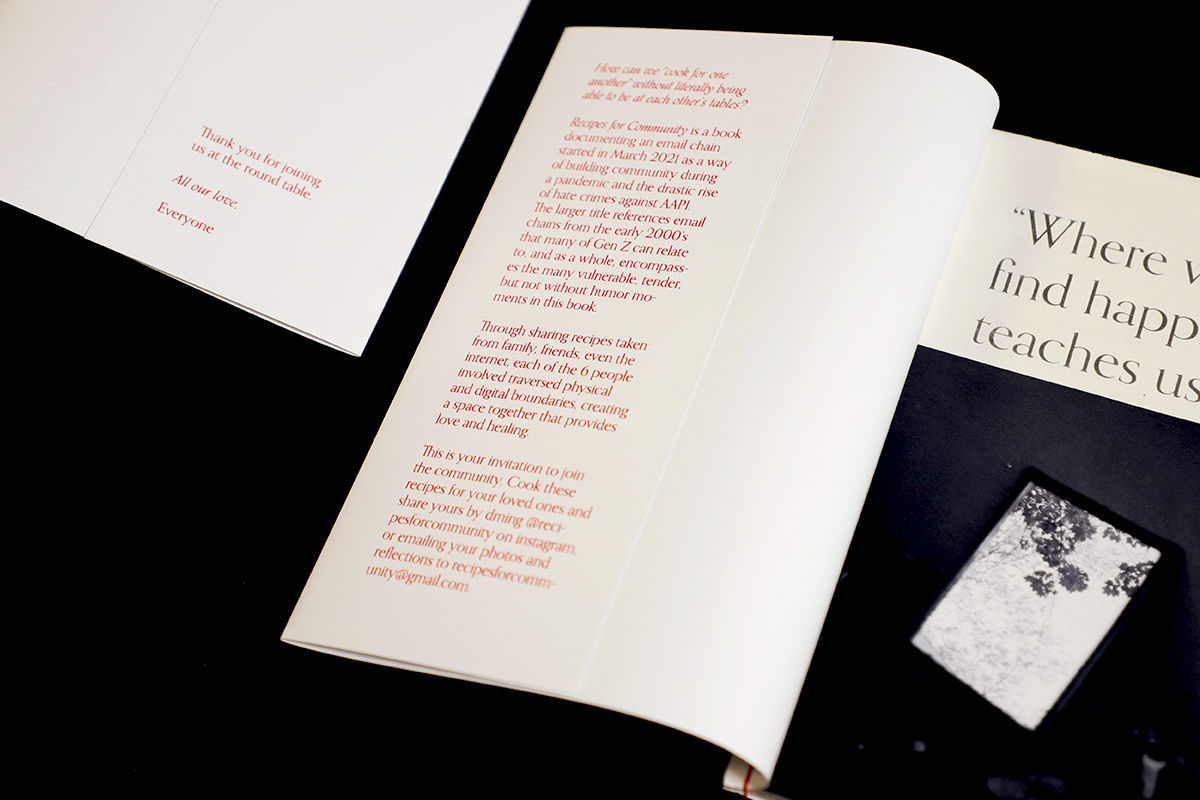 Thank you for joining
us at the round table.
All our love,
Everyone
How can we "cook for one
another" without literally being
able to be at each other's tables?
Recipes for Community is a book
documenting an email chain
started in March 2021 as a way
of building community during
a pandemic and the drastic rise
of hate crimes against AAPI.
The larger title references email
chains from the early 2000's
that many of Gen Z can relate
to, and as a whole, encompass-
es the many vulnerable, tender,
but not without humor mo-
ments in this book.
Through sharing recipes taken
from family, friends, even the
internet, each of the 6 people
involved traversed physical
and digital boundaries, creating
a space together that provides
love and healing.
This is your invitation to join
the community. Cook these
recipes for your loved ones and
share yours by dming @reci-
pesforcommunity on instagram,
or emailing your photos and
reflections to recipesforcomm-
unity@gmail.com.
"Where
find happ
teaches us